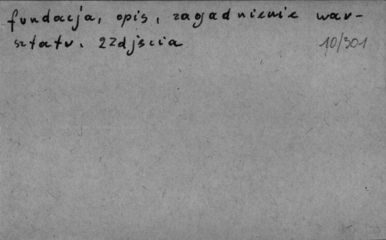 fundacja, opis, zagadnienie war-
sztatu. 2 Zdjścia 10/301